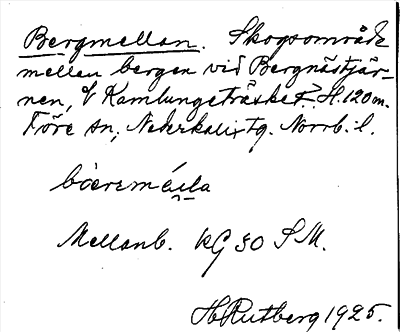 Bergmellan. Skogsområde
mellan bergen vid Bergnästjär-
nen, Kamlungeträsket. H. 120 m.
Töre sn, Nederkalix tg. Norrb. l.
Mellanb. KG 30 SM.
H. Rutberg 1925.